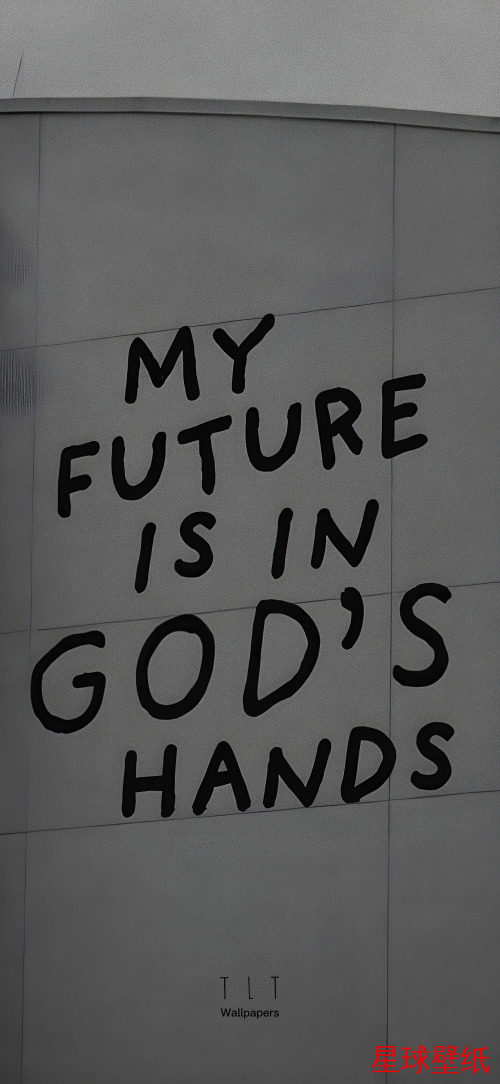 MY
FUTURE
IS IN
GOD'S
HANDS
TLT
Wallpapers
星球壁纸